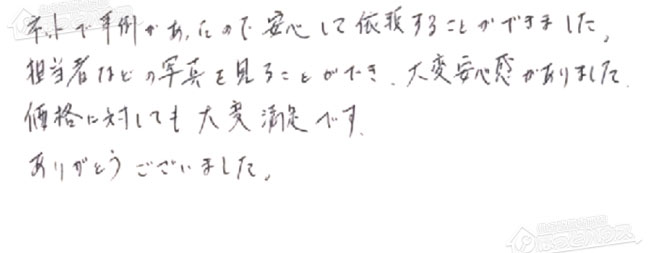 ネットで事例があったので安心して依頼することができました。
担当者などの写真を見ることができ、大変安心感がありました。
価格に対しても大変満足です。
ありがとうございました。